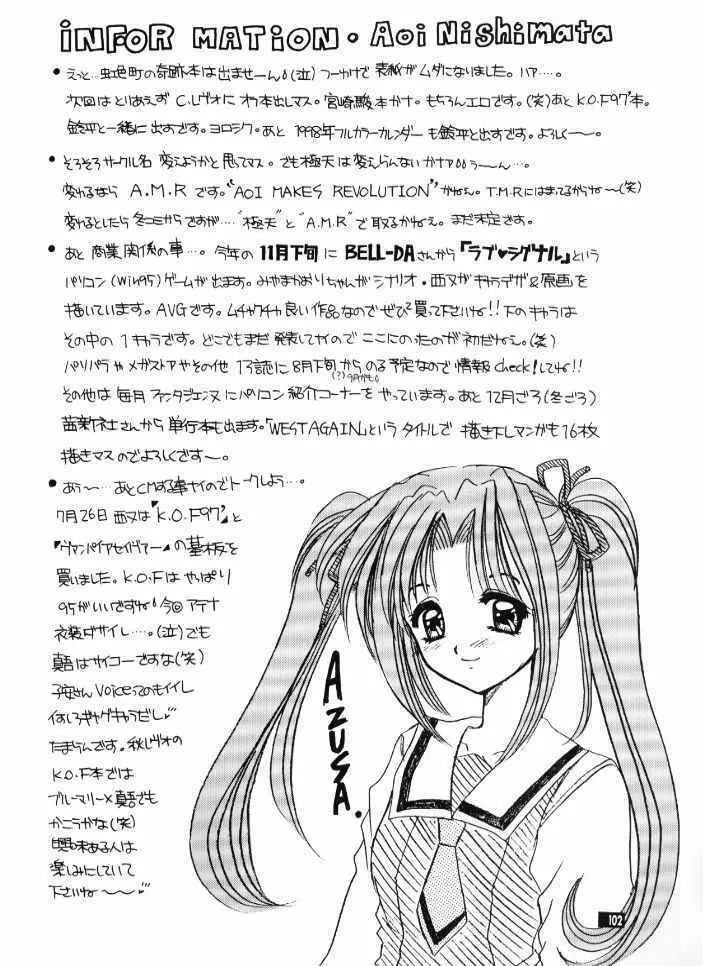 INFORMATION・Aoi Nishimata
・えっと…虹色町の奇跡本は出ませーん。(泣)つーかけで表紙がムダになりました。ハァ…。
次回はとりあえず C.レヴォに本出しマス。宮崎駿本かナ。もちろんエロです。(笑)あと K.O.F97'本。
鈴平と一緒に出すです。ヨロシク。あと 1998年フルカラーカレンダーも鈴平と出すです。よろしく〜〜。
・そろそろサークル名 変えようかと思ってマス。でも極天は変えらんないかナァ うーん…。
変わるなら A.M.R です。"AOI MAKES REVOLUTION" かねぇ。T.M.Rにはまってるからね〜(笑)
変わるとしたら冬コミからですが…"極天"と"A.M.R"で取るかねぇ。まだ未定です。
・あと 商業関係の事…。今年の11月下旬に BELL-DAさんから「ラブ♥シグナル」という
パソコン(Win95)ゲームが出ます。みやまかおりちゃんがシナリオ・西又がキャラデザ&原画を
描いています。AVGです。ムチャクチャ良い作品なのでぜひ買って下さいね!!下のキャラは
その中の1キャラです。どこでもまだ発表してナイのでここにのったのが初だねぇ。(笑)
パソパラやメガストアやその他 13誌に8月下旬からのる予定なので情報check!してね!!
(?)9月かも。
その他は毎月ファンタジェンヌにパソコン紹介コーナーをやっています。あと12月ごろ(冬ごろ)
茜新社さんから単行本も出ます。「WEST AGAIN」というタイトルで 描き下しマンガも16枚
描きマスのでよろしくです〜。
・あぅ〜…あとCMする事ナイのでトークしよう…。
7月26日 西又は「K.O.F97'」と
「ヴァンパイアセイヴァー」の基板を
買いました。K.O.Fはやっぱり
95がいいですね!今回アテナ
衣装ダサイし…。(泣)でも
真吾はサイコーですな(笑)
子安さんVoiceってのもイイし
何しろギャグキャラだし
たまらんです。秋レヴォの
K.O.F本では
ブルーマリー×真吾でも
かこうかな(笑)
興味ある人は
楽しみにしていて
下さいね〜〜
AZUSA.
102